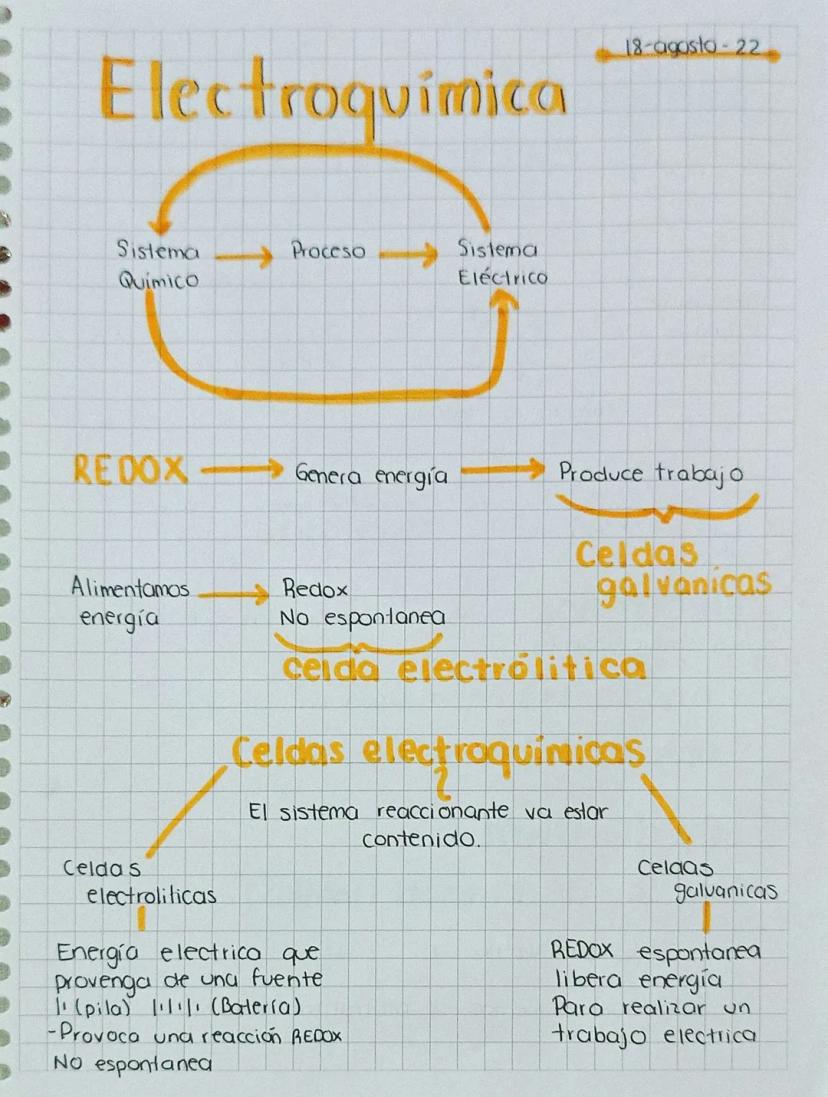 18-agosto-22
Electroquímica
Sistema Químico → Proceso → Sistema Eléctrico
REDOX → Genera energía → Produce trabajo
Celdas
galvanicas
Alimentamos energía → Redox No espontanea
celda electrólitica
Celdas electroquímicas
El sistema reaccionante va estar
contenido.
Celdas
electroliticas
Energía electrica que
provenga de una fuente
(pila) (Batería)
-Provoca una reacción REDOX
No espontanea
Celdas
galvanicas
REDOX espontanea
libera energía
Para realizar un
trabajo electrica